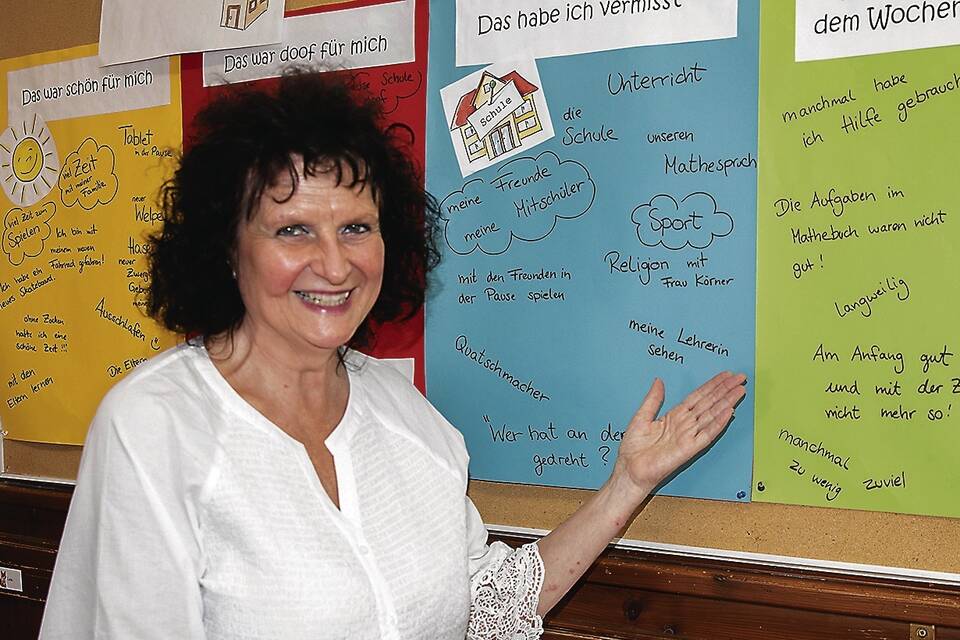 Das war schön für mich
Tablet
in der Pause
viel Zeit
mit meiner
Familie
viel Zeit zum
Spielen
neuer
Welpe
Ich bin mit
meinem neuen
Fahrrad gefahren!
Ich habe ein
neues Skateboard.
neuer
Zwerg
Ausschlafen
ohne Zocken
hatte ich eine
schöne Zeit!!!
Die Eltern
mit den
Eltern lernen
Das war doof für mich
Schule
doof
Das habe ich vermisst
Schule
Unterricht
die
Schule
unseren
Mathespruch
meine Freunde
meine Mitschüler
Sport
mit den Freunden in
der Pause spielen
Religion mit
Frau Körner
Quatschmacher
meine Lehrerin
sehen
"Wer hat an der
gedreht?
dem Wochen
manchmal habe
ich Hilfe gebrauch
Die Aufgaben im
Mathebuch waren nicht
gut!
langweilig
Am Anfang gut
und mit der Z
nicht mehr so!
manchmal
zu wenig zuviel